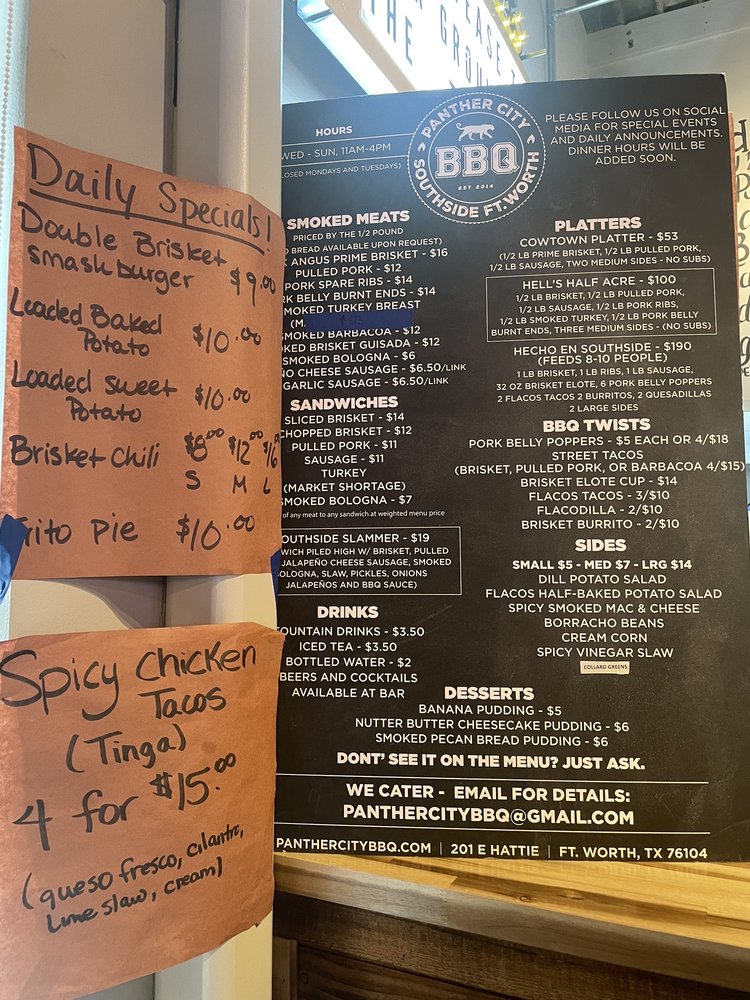 EASE T
GROU
THE
Daily Specials!
Double Brisket
smashburger $9.00
Loaded Baked
Potato $10.00
Loaded sweet
Potato $10.00
Brisket Chili $8.00 $12.00 $16
S M L
rito Pie $10.00
Spicy Chicken
Tacos
(Tinga)
4 for $15.00
(queso fresco, cilantro,
Lime slaw, cream)
HOURS
WED - SUN, 11AM-4PM
LOSED MONDAYS AND TUESDAYS)
PANTHER CITY
BBQ
EST 2014
SOUTHSIDE FT. WORTH
PLEASE FOLLOW US ON SOCIAL
MEDIA FOR SPECIAL EVENTS
AND DAILY ANNOUNCEMENTS.
DINNER HOURS WILL BE
ADDED SOON.
SMOKED MEATS
PRICED BY THE 1/2 POUND
D BREAD AVAILABLE UPON REQUEST)
K ANGUS PRIME BRISKET - $16
PULLED PORK - $12
PORK SPARE RIBS - $14
RK BELLY BURNT ENDS - $14
SMOKED TURKEY BREAST
(M
SMOKED BARBACOA - $12
OKED BRISKET GUISADA - $12
SMOKED BOLOGNA - $6
NO CHEESE SAUSAGE - $6.50/LINK
GARLIC SAUSAGE - $6.50/LINK
SANDWICHES
SLICED BRISKET - $14
CHOPPED BRISKET - $12
PULLED PORK - $11
SAUSAGE - $11
TURKEY
(MARKET SHORTAGE)
SMOKED BOLOGNA - $7
of any meat to any sandwich at weighted menu price
OUTHSIDE SLAMMER - $19
WICH PILED HIGH W/ BRISKET, PULLED
JALAPEÑO CHEESE SAUSAGE, SMOKED
OLOGNA, SLAW, PICKLES, ONIONS
JALAPEÑOS AND BBQ SAUCE)
DRINKS
OUNTAIN DRINKS - $3.50
ICED TEA - $3.50
BOTTLED WATER - $2
BEERS AND COCKTAILS
AVAILABLE AT BAR
PLATTERS
COWTOWN PLATTER - $53
(1/2 LB PRIME BRISKET, 1/2 LB PULLED PORK,
1/2 LB SAUSAGE, TWO MEDIUM SIDES - NO SUBS)
HELL'S HALF ACRE - $100
1/2 LB BRISKET, 1/2 LB PULLED PORK,
1/2 LB SAUSAGE, 1/2 LB PORK RIBS,
1/2 LB SMOKED TURKEY, 1/2 LB PORK BELLY
BURNT ENDS, THREE MEDIUM SIDES - (NO SUBS)
HECHO EN SOUTHSIDE - $190
(FEEDS 8-10 PEOPLE)
1 LB BRISKET, 1 LB RIBS, 1 LB SAUSAGE,
32 OZ BRISKET ELOTE, 6 PORK BELLY POPPERS
2 FLACOS TACOS 2 BURRITOS, 2 QUESADILLAS
2 LARGE SIDES
BBQ TWISTS
PORK BELLY POPPERS - $5 EACH OR 4/$18
STREET TACOS
(BRISKET, PULLED PORK, OR BARBACOA 4/$15)
BRISKET ELOTE CUP - $14
FLACOS TACOS - 3/$10
FLACODILLA - 2/$10
BRISKET BURRITO - 2/$10
SIDES
SMALL $5 - MED $7 - LRG $14
DILL POTATO SALAD
FLACOS HALF-BAKED POTATO SALAD
SPICY SMOKED MAC & CHEESE
BORRACHO BEANS
CREAM CORN
SPICY VINEGAR SLAW
COLLARD GREENS
DESSERTS
BANANA PUDDING - $5
NUTTER BUTTER CHEESECAKE PUDDING - $6
SMOKED PECAN BREAD PUDDING - $6
DONT' SEE IT ON THE MENU? JUST ASK.
WE CATER - EMAIL FOR DETAILS:
PANTHERCITYBBQ@GMAIL.COM
PANTHERCITYBBQ.COM | 201 E HATTIE | FT. WORTH, TX 76104